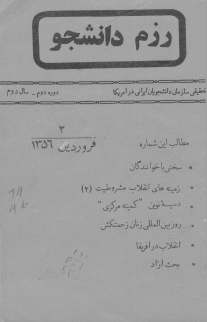 رزم دانشجو
تحقیقی سازمان دانشجویان ایرانی در آمریکا
دوره دوم - سال دوم
۲
فروردین ۱۳۵۶
مطالب این شماره
سخنی با خوانندگان
زمینه های انقلاب مشروطیت (۲)
دسیسه نوین "کمیته مرکزی"
روز بین المللی زنان زحمتکش
انقلاب در آفریقا
بحث آزاد